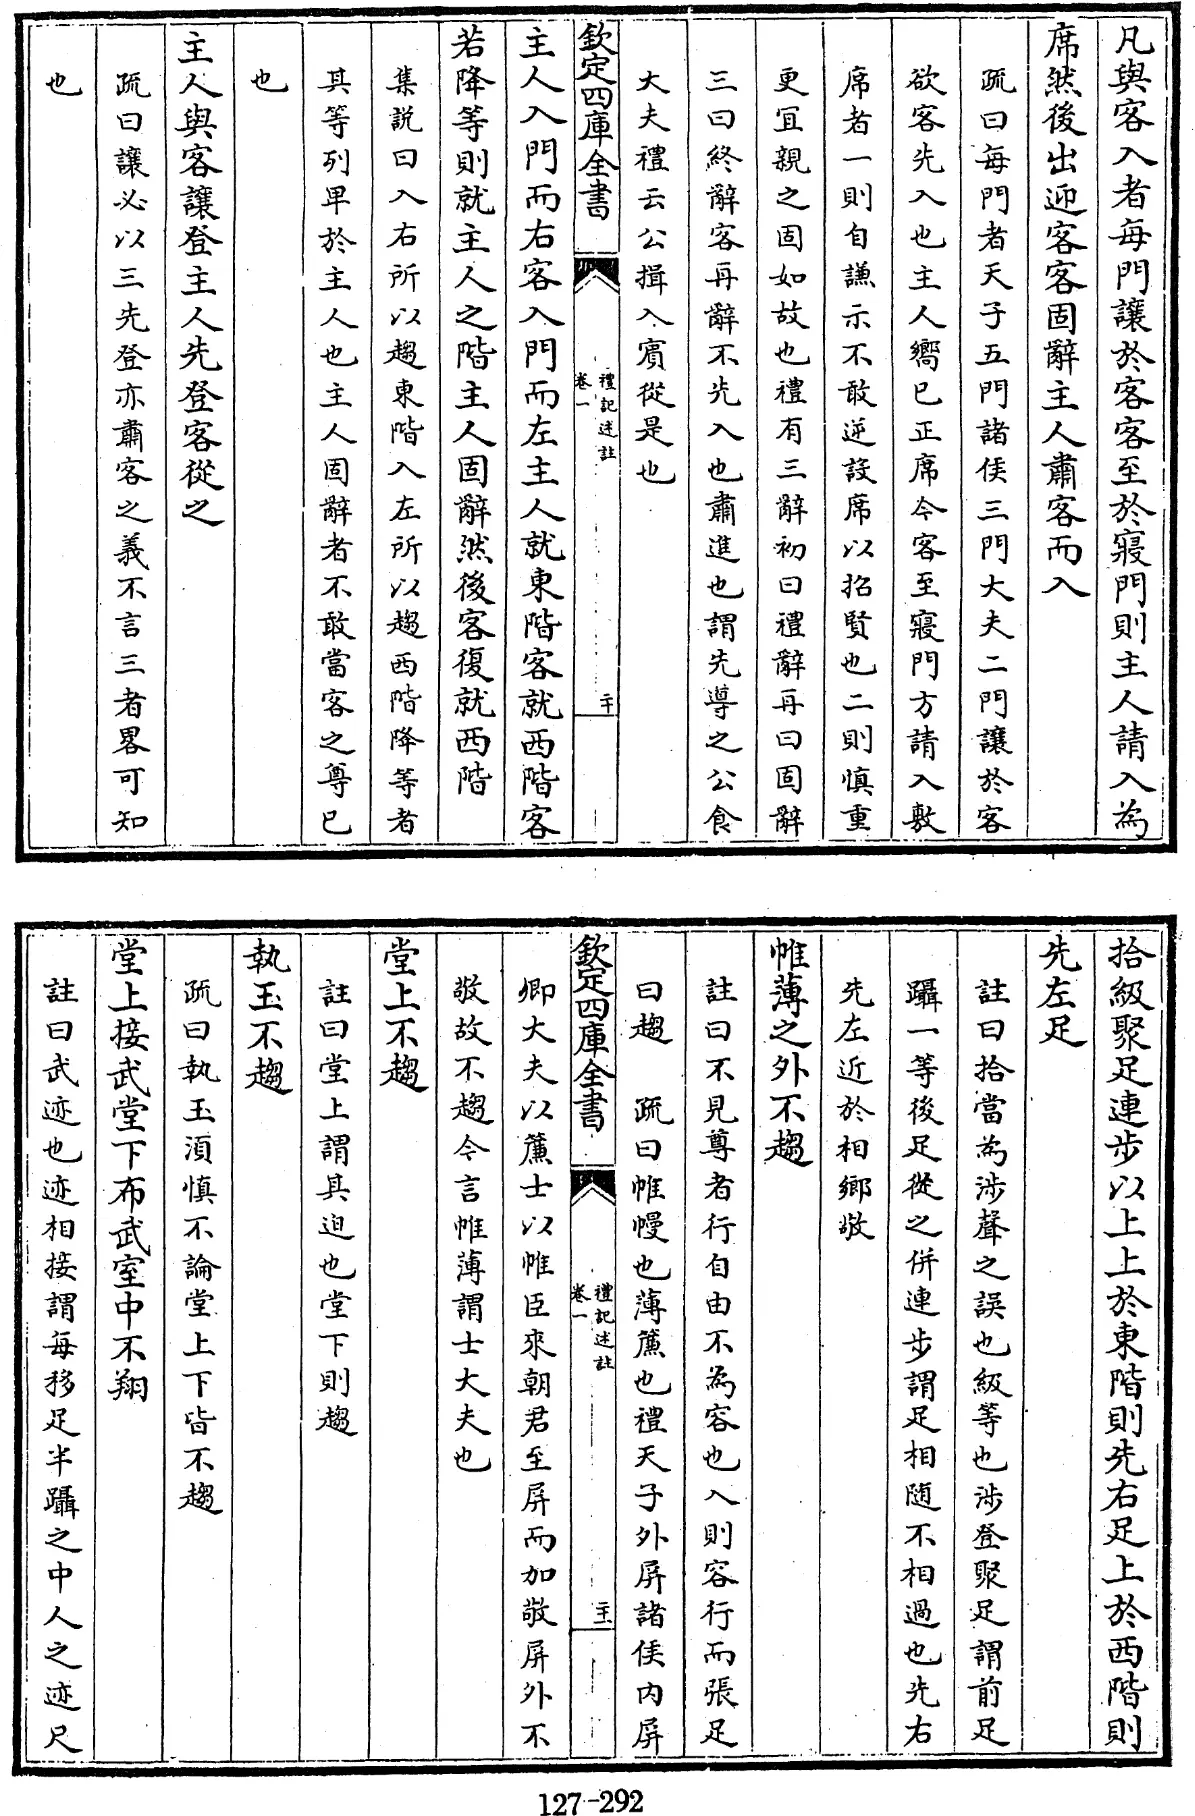 凡與客入者每門讓於客客至於寢門則主人請入為
席然後出迎客客固辭主人肅客而入
疏曰每門者天子五門諸侯三門大夫二門讓於客
欲客先入也主人嚮已正席今客至寢門方請入敷
席者一則自謙示不敢逆設席以招賢也二則慎重
更宜親之固如故也禮有三辭初曰禮辭再曰固辭
三曰終辭客再辭不先入也肅進也謂先導之公食
大夫禮云公揖入賓從是也
欽定四庫全書
禮記述註
卷一
二十
主人入門而右客入門而左主人就東階客就西階客
若降等則就主人之階主人固辭然後客復就西階
集說曰入右所以趨東階入左所以趨西階降等者
其等列卑於主人也主人固辭者不敢當客之尊已
也
主人與客讓登主人先登客從之
疏曰讓必以三先登亦肅客之義不言三者畧可知
也
拾級聚足連步以上上於東階則先右足上於西階則
先左足
註曰拾當為涉聲之誤也級等也涉登聚足謂前足
躡一等後足從之併連步謂足相隨不相過也先右
先左近於相鄉敬
帷薄之外不趨
註曰不見尊者行自由不為容也入則容行而張足
曰趨 疏曰帷幔也薄簾也禮天子外屏諸侯內屏
欽定四庫全書
禮記述註
卷一
卿大夫以簾士以帷臣來朝君至屏而加敬屏外不
敬故不趨今言帷薄謂士大夫也
堂上不趨
註曰堂上謂其迫也堂下則趨
執玉不趨
疏曰執玉湏慎不論堂上下皆不趨
堂上接武堂下布武室中不翔
註曰武迹也迹相接謂每移足半躡之中人之迹尺
127-292